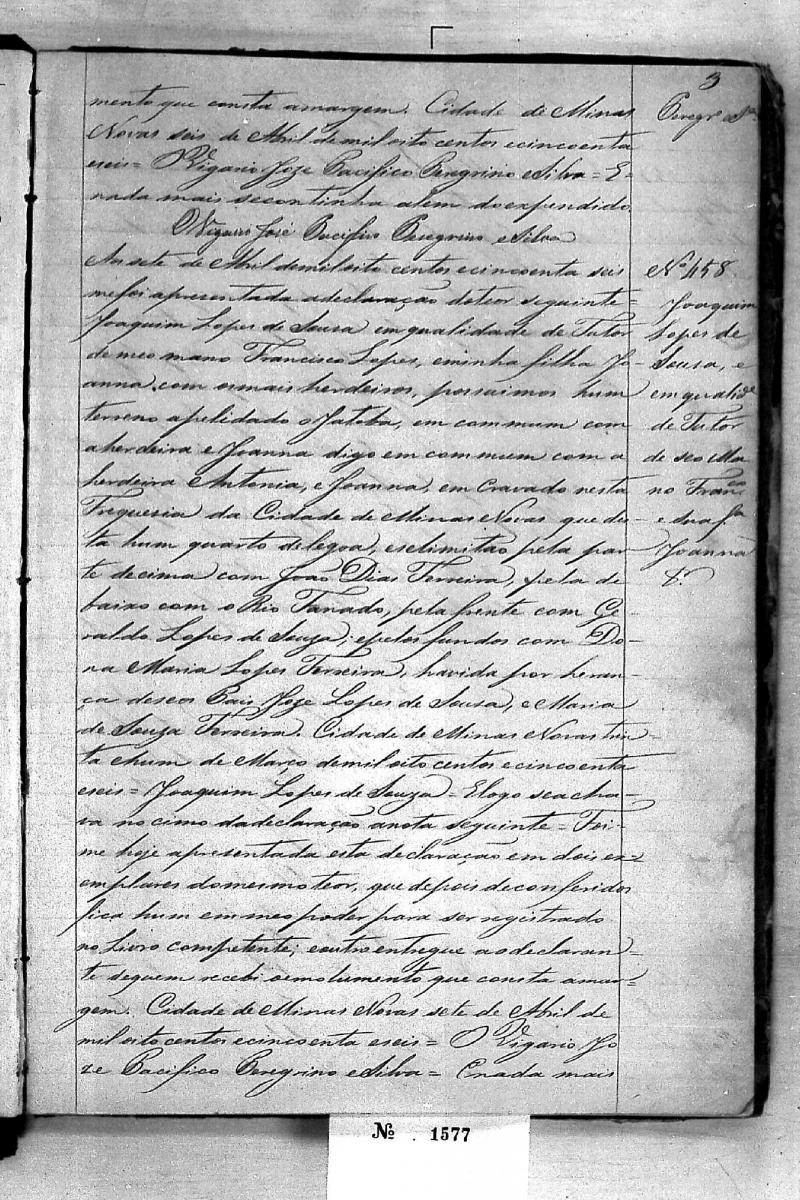 3
mento que consta amargem. Cidade de Minas
Novas seis de Abril demiloito centos ecincoenta
eseis = O Vigario Joze Pacifico Peregrino eSilva = E-
nada mais secontinha alem doexpendido.
O Vigario José Pacifico Peregrino eSilva
Peregr.º S.ª
Aos sete de Abril demiloito centos ecincoenta seis
mefoi apresentada adeclaração doteor seguinte =
Joaquim Lopes de Sousa em qualidade de Tutor
de meo mano Francisco Lopes, eminha filha Jo-
anna, com osmais herdeiros, possuimos hum
terreno apelidado o Jatoba, em commum com
aherdeira e Joanna digo em commum com a
herdeira Antonia, e Joanna, em Cravado nesta
Freguesia da Cidade de Minas Novas que dei-
ta hum quarto delegoa, eselimitão pela par-
te decima com João Dias Ferreira, pela de
baixo com o Rio Fanado, pela frente com Ge-
raldo Lopes de Souza, epelos fundos com Do-
na Maria Lopes Ferreira, havida por heran-
ça deseos Pais Joze Lopes de Sousa, e Maria
de Souza Ferreira. Cidade de Minas Novas trin-
ta ehum de Março demiloito centos ecincoenta
eseis = Joaquim Lopes de Souza = Elogo seacha-
va nocimo dadeclaração anota seguinte = Foi-
me hoje apresentada esta declaração em dois ex-
emplares domesmo teor, que depois deconferidos
fica hum em meo poder para ser registrado
no Livro competente; eoutro entregue aodeclaran-
te dequem recebi oemolumento que consta amar-
gem. Cidade de Minas Novas sete de Abril de
mil oito centos ecincoenta eseis = O Vigario Jo
ze Pacifico Peregrino eSilva = Enada mais
Nº 458
Joaquim
Lopes de
Sousa, e
em qualid.e
de Tutor
de seo Ma
no Fran.co
e sua f.ª
Joanna
&.
Nº. 1577